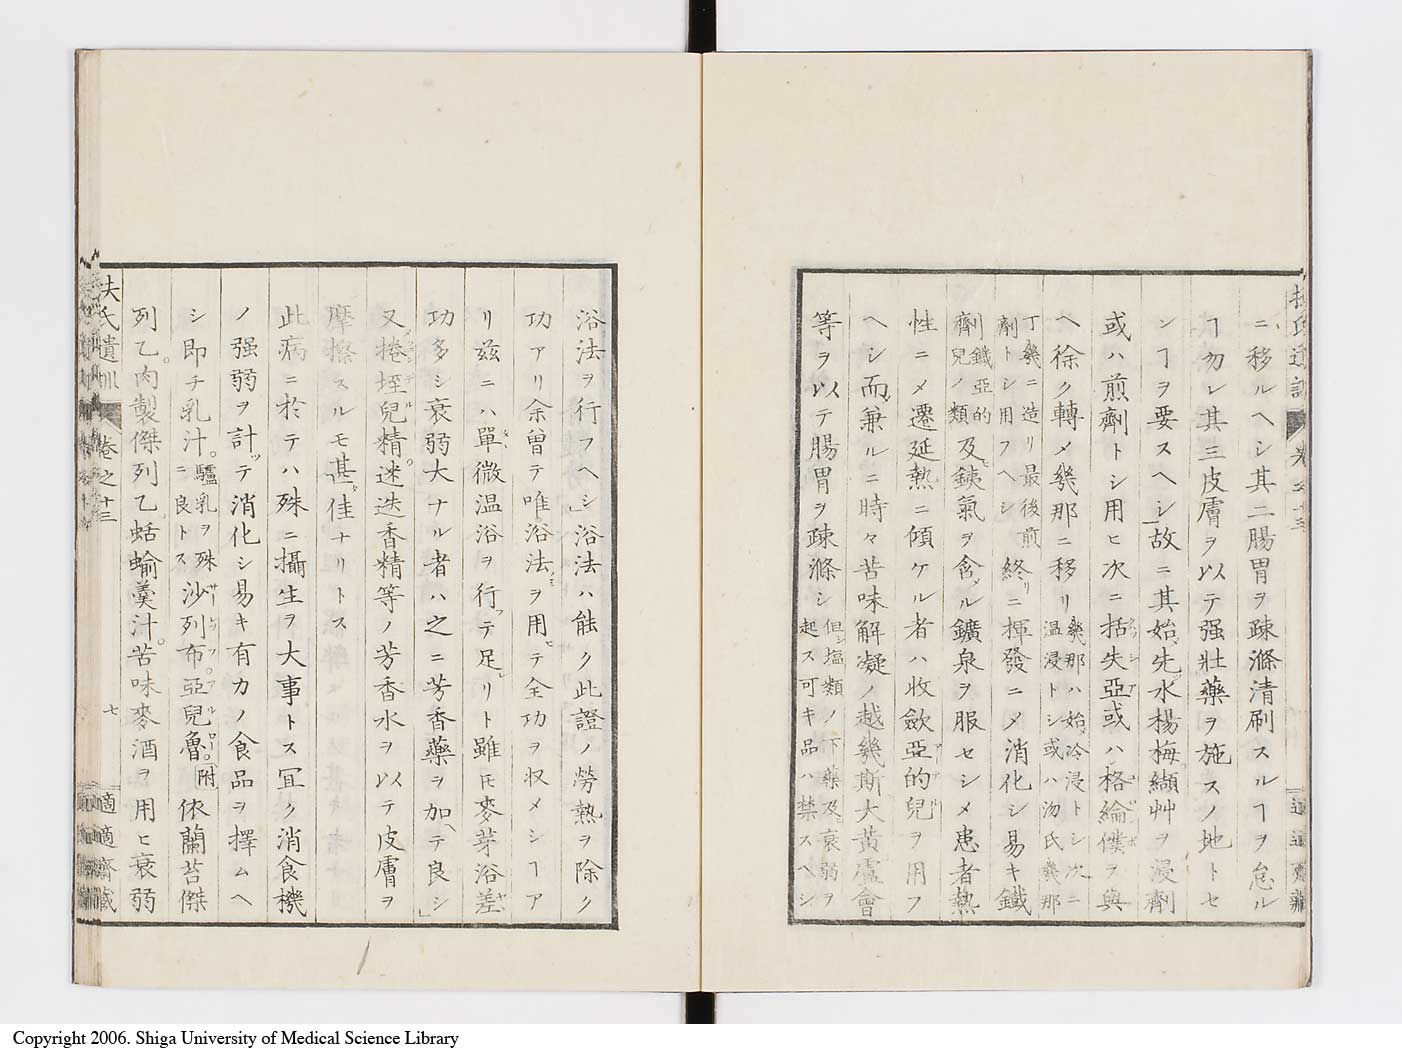 ニ移ルヘシ其二腸胃ヲ疎滌清刷スルヿヲ怠ル
ヿ勿レ其三皮膚ヲ以テ强壯藥ヲ施スノ地トセ
シヿヲ要スヘシ故ニ其始先水楊梅纈艸ヲ浸劑
或ハ煎劑トシ用ヒ次ニ括失亞或ハ格綸僕ヲ與
ヘ徐ク轉メ幾那ニ移リ幾那ハ始冷浸トシ次ニ
温浸トシ或ハ沕氏幾那
丁幾ニ造リ最後煎
劑トシ用フヘシ終ニ揮發ニメ消化シ易キ鐵
劑鐵亞的
兒ノ類及銕氣ヲ含メル鑛泉ヲ服セシメ患者熱
性ニメ遷延熱ニ傾ケル者ハ收斂亞的兒ヲ用フ
ヘシ而兼ルニ時々苦味解凝ノ越幾斯大黄盧會
等ヲ以テ腸胃ヲ疎滌シ但シ塩類ノ下藥及ヒ衰弱ヲ
起ス可キ品ハ禁スヘシ
浴法ヲ行フヘシ浴法ハ能ク此證ノ勞熱ヲ除ク
功アリ余曽テ唯浴法ヲ用テ全功ヲ収メシヿア
リ兹ニハ單微温浴ヲ行テ足リト雖𪜈麥芽浴差
功多シ衰弱大ナル者ハ之ニ芳香藥ヲ加テ良シ
又捲垤兒精迷迭香精等ノ芳香水ヲ以テ皮膚ヲ
摩擦スルモ甚佳ナリトス
此病ニ於テハ殊ニ攝生ヲ大事トス冝ク消食機
ノ强弱ヲ計テ消化シ易キ有力ノ食品ヲ擇ムヘ
シ即チ乳汁。驢乳ヲ殊
ニ良トス沙列布亞兒魯。附依蘭苔傑
列乙。肉製傑列乙蛞蝓羹汁。苦味麥酒ヲ用ヒ衰弱
扶氏遺訓 卷之十三 七 適適齋藏